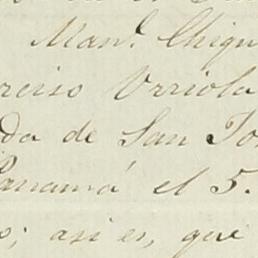 Man.l Chiqu
rciso Urriola
da de San Jo
Panamá el 5.
s; asi es, que